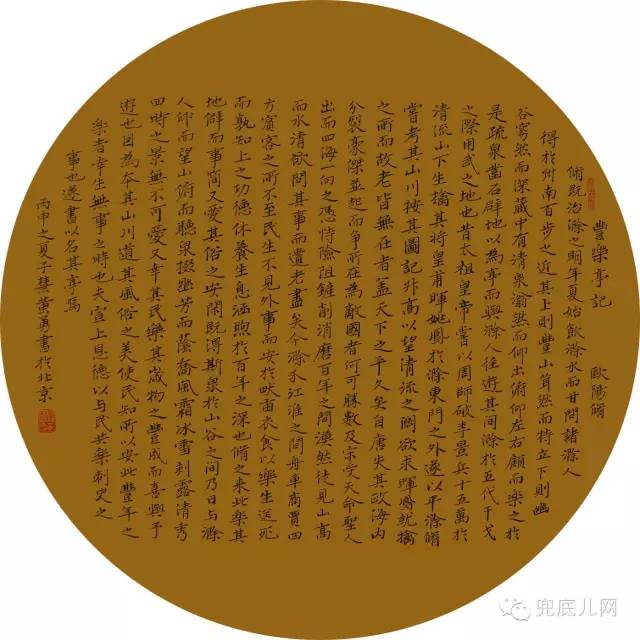 豐樂亭記 歐陽脩
脩既治滁之明年夏始飲滁水而甘問諸滁人
得於州南百步之近其上則豐山聳然而特立下則幽
谷窈然而深藏中有清泉滃然而仰出俯仰左右顧而樂之於
是疏泉鑿石辟地以為亭而與滁人往遊其間滁於五代干戈
之際用武之地也昔太祖皇帝嘗以周師破李景兵十五萬於
清流山下生擒其將皇甫暉姚鳳於滁東門之外遂以平滁脩
嘗考其山川按其圖記升高以望清流之關欲求暉鳳就擒
之所而故老皆無在者蓋天下之平久矣自唐失其政海内
分裂豪傑並起而爭所在為敵國者何可勝數及宋受天命聖人
出而四海一向之憑恃險阻鏟削消磨百年之間漠然徒見山高
而水清欲問其事而遺老盡矣今滁介江淮之間舟車商賈四
方賓客之所不至民生不見外事而安於畎畝衣食以樂生送死
而孰知上之功德休養生息涵煦於百年之深也脩之來此樂其
地僻而事簡又愛其俗之安閑既得斯泉於山谷之間乃日與滁
人仰而望山俯而聽泉掇幽芳而蔭喬風霜冰雪刻露清秀
四時之景無不可愛又幸其民樂其歲物之豐成而喜與予
遊也因為本其山川道其風俗之美使民知所以安此豐年之
樂者幸生無事之時也夫宣上恩德以與民共樂刺史之
事也遂書以名其亭焉
丙申之夏子彗黃勇書於北京
兜底儿网